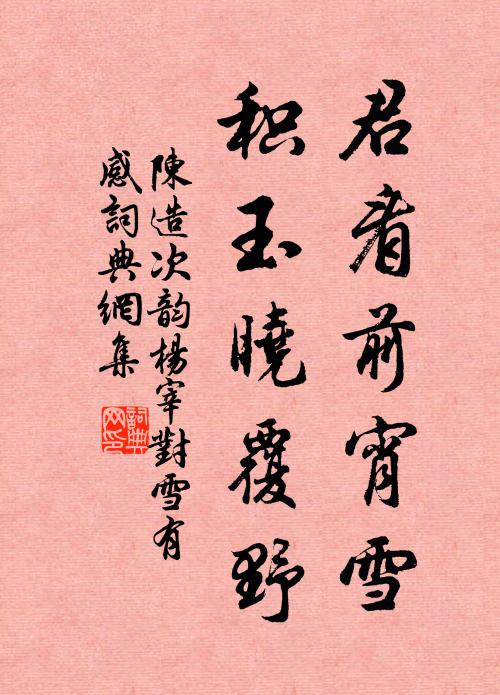 君看前宵雪
积玉曉覆野
陳造次韵楊宰對雪有
感詞典網集
詞典
网印